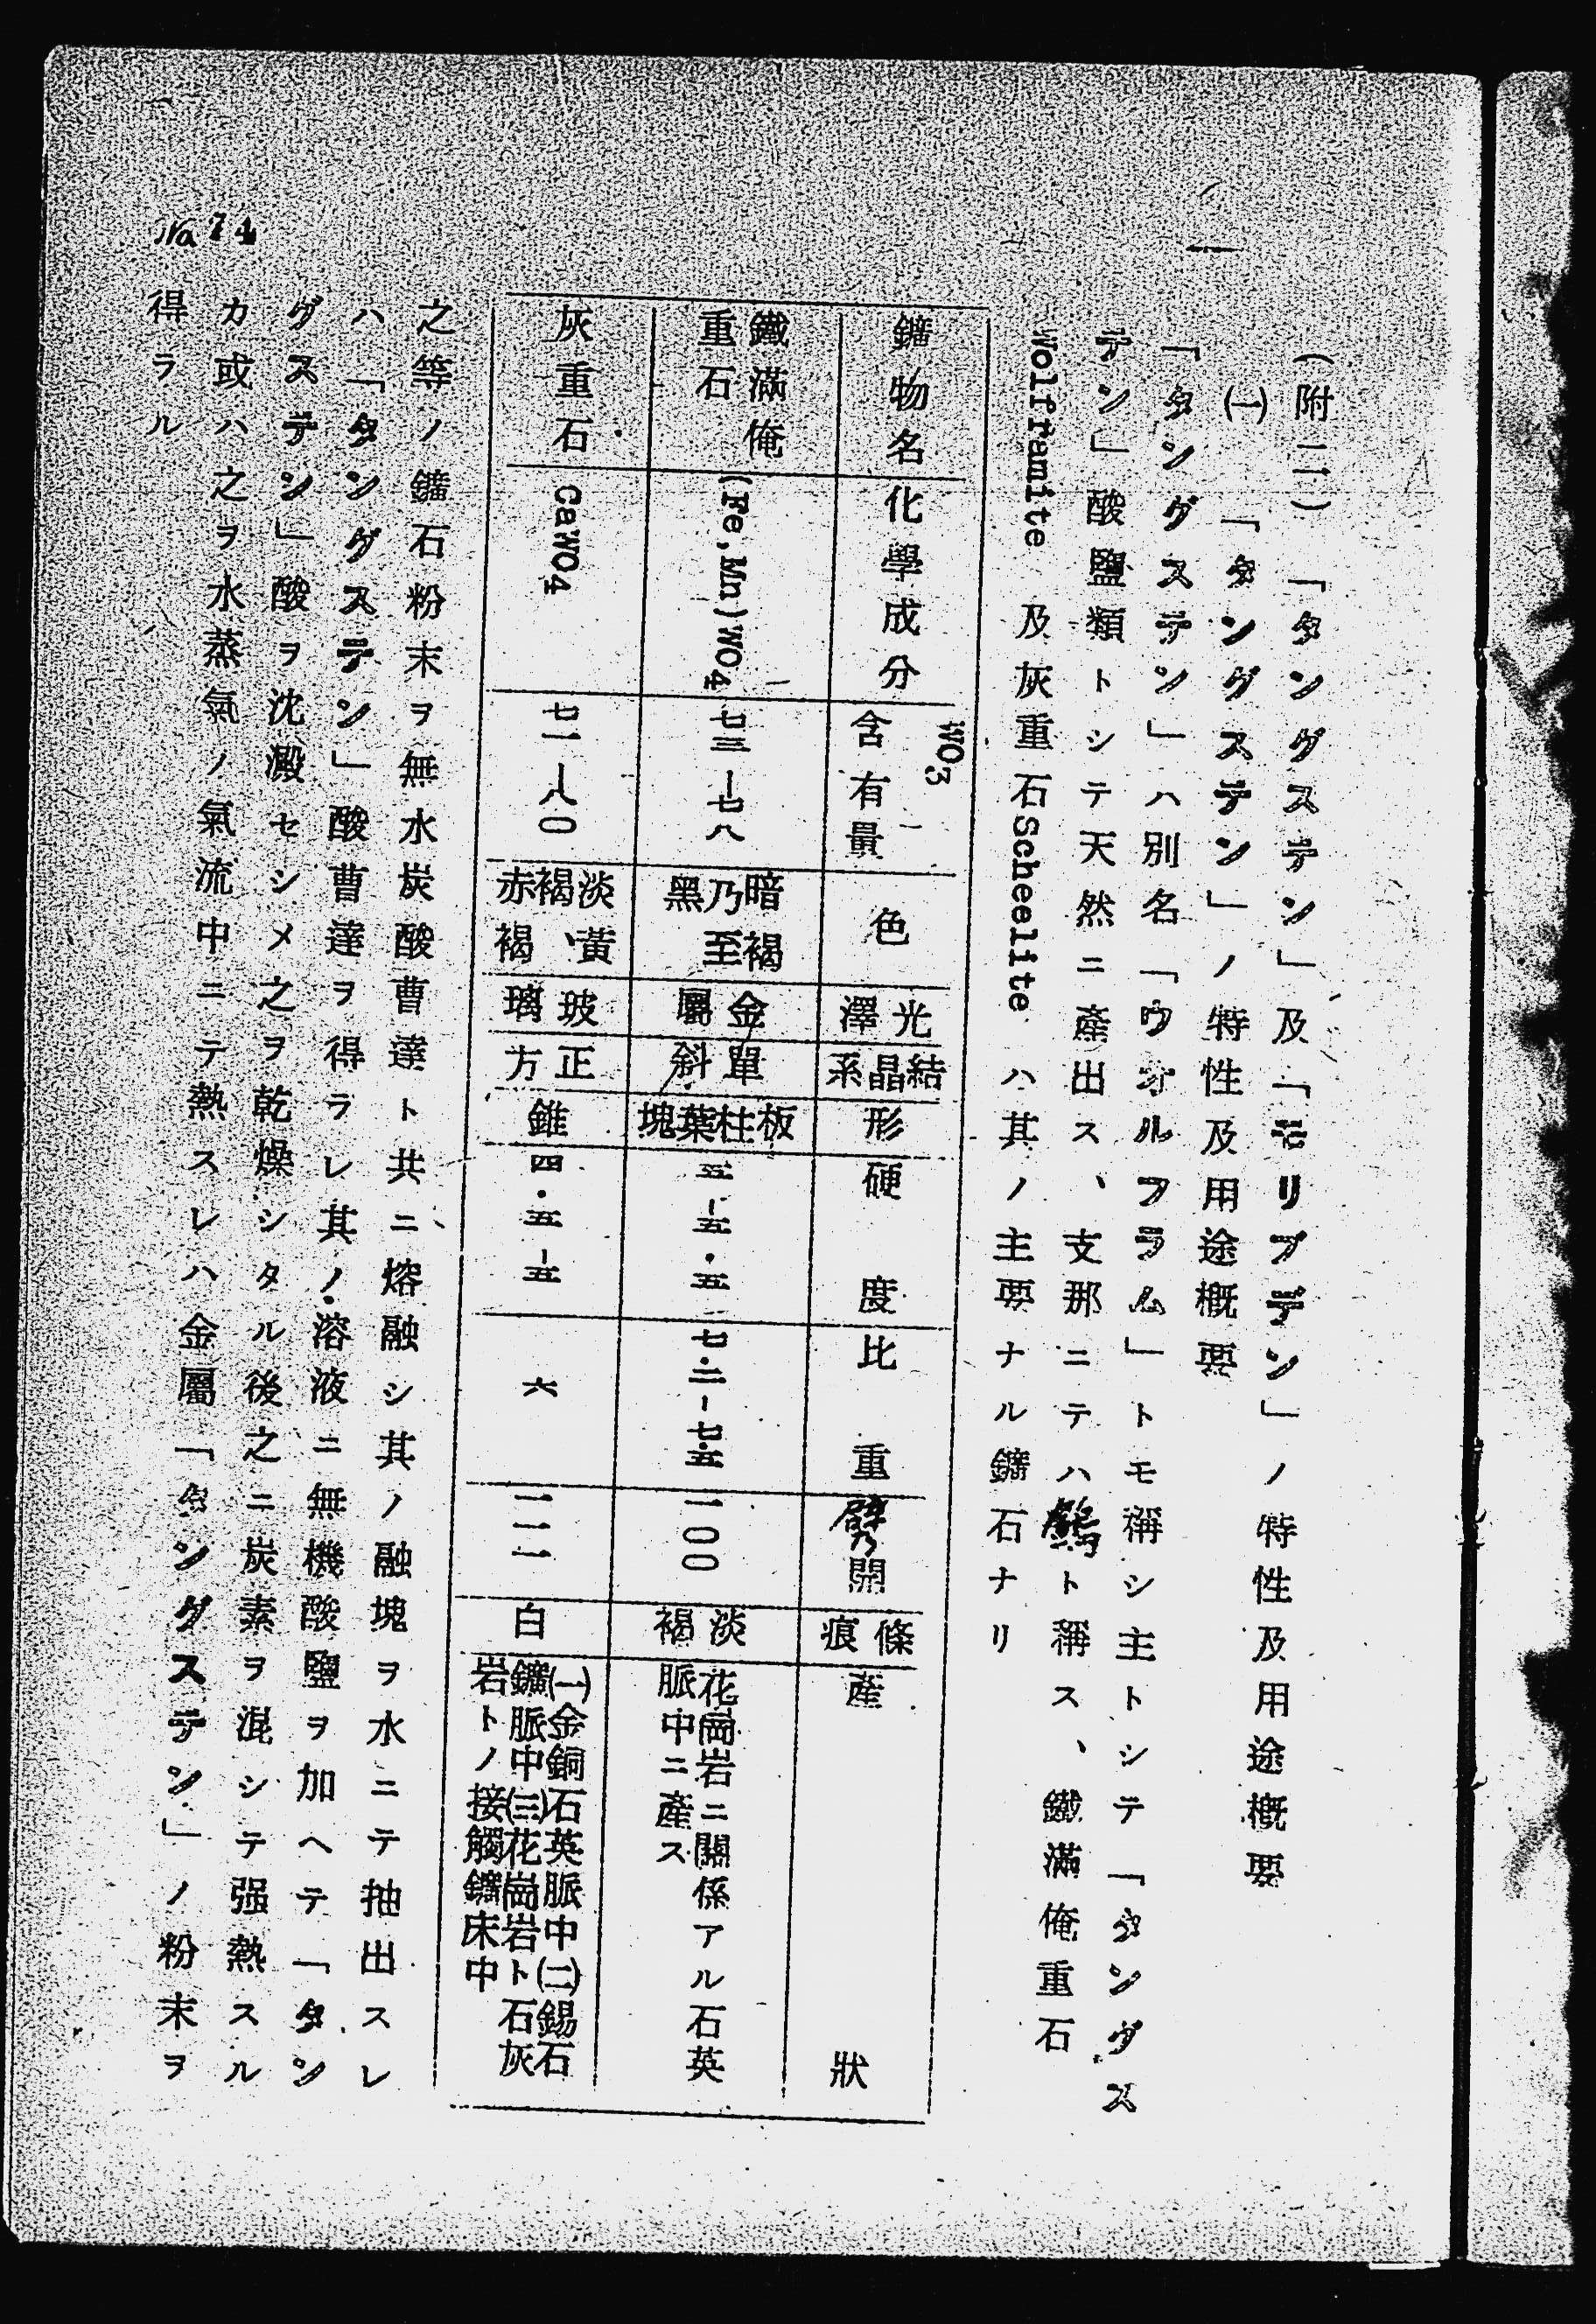 （附二）「タングステン」及「モリブデン」ノ特性及用途概要
㈠「タングステン」ノ特性及用途概要
「タングステン」ハ別名「ウオルフラム」トモ稱シ主トシテ「タングス
テン」酸鹽類トシテ天然ニ產出ス、支那ニテハ鎢ト稱ス、鐵滿俺重石
Wolframite 及灰重石Scheelite ハ其ノ主要ナル鑛石ナリ
鑛物名 化學成分 WO3含有量 色 光澤 結晶系 形 硬度 比重 劈開 條痕 產狀
鐵滿俺重石 (Fe,Mn)WO4 七三-七八 暗褐乃至黑 金屬 單斜 板柱葉塊 五-五・五 七・二-七・五 一〇〇 淡褐 花崗岩ニ關係アル石英脈中ニ產ス
灰重石 CaWO4 七一-八〇 淡黃、褐赤褐 玻璃 正方 錐 四・五-五 六 一一一 白 ㈠金銅石英脈中㈡錫石鑛脈中㈢花崗岩ト石灰岩トノ接觸鑛床中
之等ノ鑛石粉末ヲ無水炭酸曹達ト共ニ熔融シ其ノ融塊ヲ水ニテ抽出スレ
ハ「タングステン」酸曹達ヲ得ラレ其ノ溶液ニ無機酸鹽ヲ加ヘテ「タン
グステン」酸ヲ沈澱セシメ之ヲ乾燥シタル後之ニ炭素ヲ混シテ强熱スル
カ或ハ之ヲ水蒸氣ノ氣流中ニテ熱スレハ金屬「タングステン」ノ粉末ヲ
得ラル
No 74